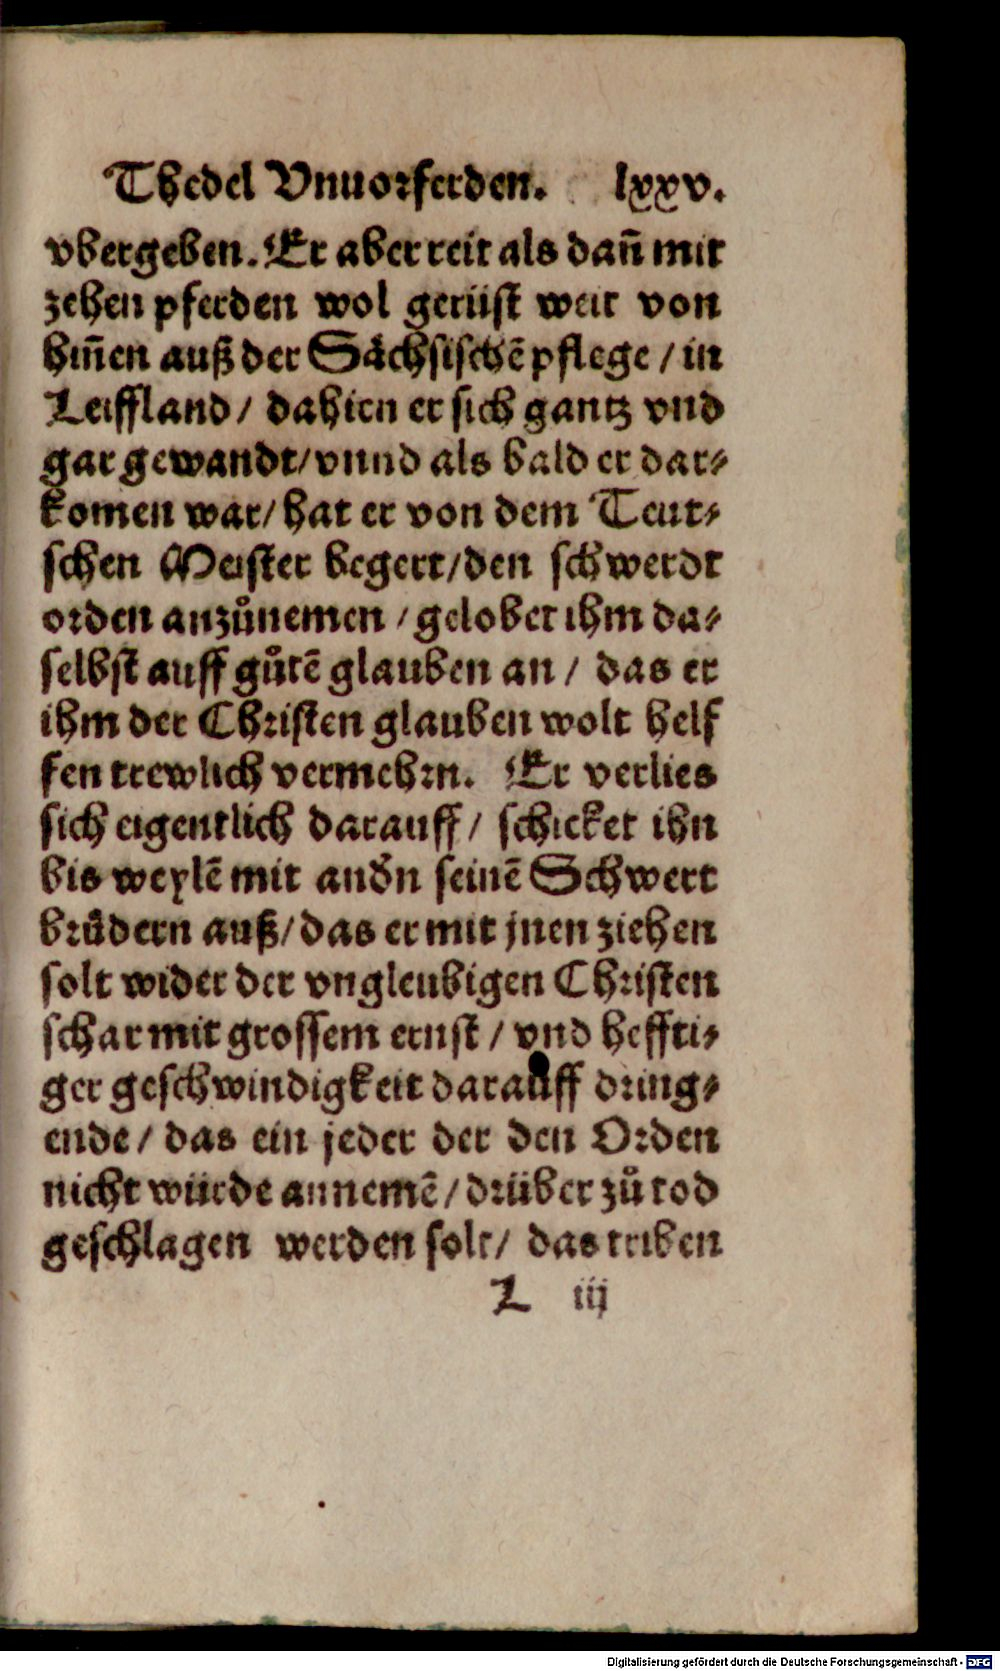 Thedel Vnuorferden. lxxv.
vbergeben. Er aber reit als dañ mit
zehen pferden wol gerüst weit von
hiñen auß der Sächsischē pflege / in
Leiffland / dahien er sich gantz vnd
gar gewandt / vnnd als bald er dar⸗
komen war / hat er von dem Teut⸗
schen Meister begert / den schwerdt
orden anzůnemen / gelobet ihm da⸗
selbst auff gůtē glauben an / das er
ihm der Christen glauben wolt helf
fen trewlich vermehrn. Er verlies
sich eigentlich darauff / schicket ihn
bis weylē mit andn̄ seinē Schwert
brüdern auß / das er mit jnen ziehen
solt wider der vngleubigen Christen
schar mit grossem ernst / vnd heffti⸗
ger geschwindigkeit darauff dring⸗
ende / das ein jeder der den Orden
nicht würde annemē / drüber zů tod
geschlagen werden solt / das triben
L iij
Digitalisierung gefördert durch die Deutsche Forschungsgemeinschaft - DFG